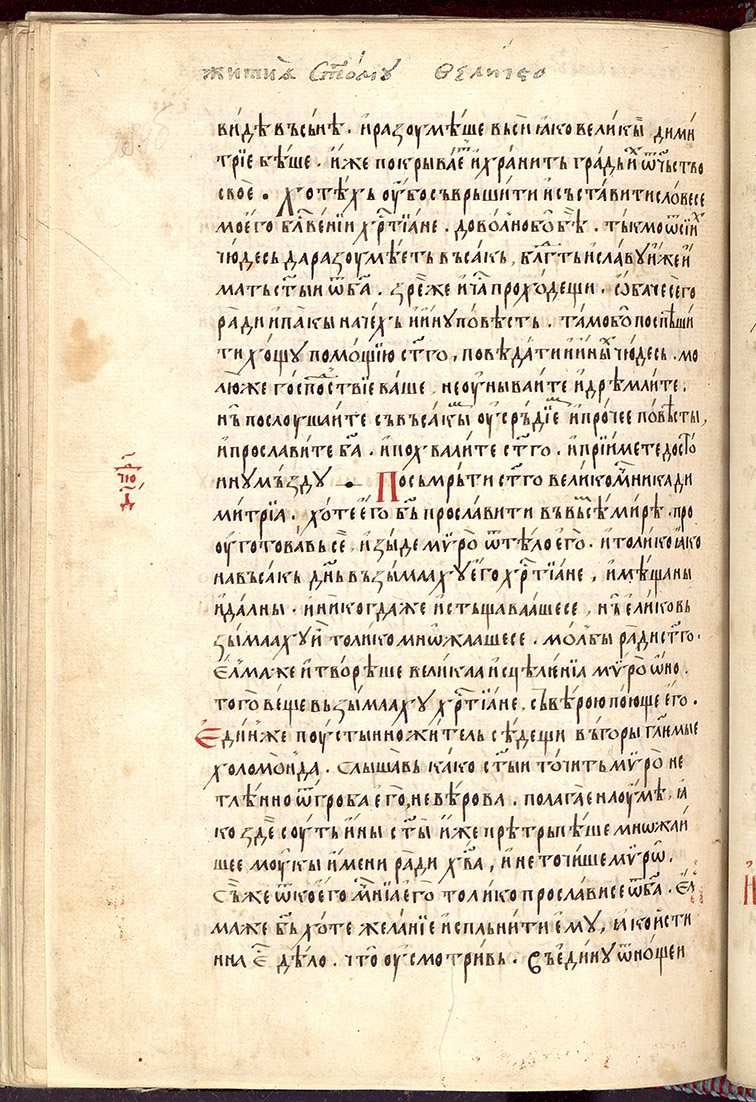 житиꙗ ст҃омꙋ ѳелитѕо
видѣ въ сънѣ. и разоумѣше въси ꙗко великыи дими
трїе бѣше. иже покрываеть и хранить градь и ѿчьство
своѐ. Хотѣхь оубо съвръшити и съставити словесе
моего блг҃венїи хр҃тїане. доволно бо бѣ. тъкмо ѿ сїихь
чюдесь да разоумѣеть въсакь, блг҃ть и славꙋ иже и
мать ст҃ыи ѿ б҃а. зреже и ча проходещи. ѡбаче сего
ради и пакы начехь и инꙋ повѣсть. тамо бо поспѣши
ти хощꙋ помощїю ст҃го, повѣдати и иныхь чюдесь. мо
лю же господствїе ваше, не оунываите и дрѣмлите.
нь послоушаите съ въсакымь оусръдїемь и прочее повѣсты,
и прославите б҃а. и похвалите ст҃го. и прїимете досто
инꙋ мъздꙋ — По съмръти ст҃го великом҃ника ди
митрїа. хоте его б҃ь прославити въ въсемь мирѣ. про
оуготовавь се, изыде мѵро ѿ тѣло его. и толико ꙗко
на въсакь дн҃ь възымаахꙋ его хр҃тїане, и мѣщаны
и далны. и никогдаже истьщавааше се, нь еликовь
зымаахꙋ и толико мнѡжааше се. молбы ради ст҃го.
Елмаже и твореше великаа исцѣленїа мѵро ѡно.
того веще възымаахꙋ хр҃тїане, съ вѣрою поюще его.
Един же поустынножитель сѣдещи въ горы гл҃имые
холомонда. слышавь како ст҃ыи точить мѵро не
тлѣнно ѿ гроба его, не вѣрова. полагае на оумѣ, ꙗ
ко зде соуть ины ст҃ы иже прѣтрьпѣше мнѡжаи
шее моукы имени ради хв҃а, и не точише мѵрѡ.
Съже ѿ коего мнѣнїа его толико прослави се ѿ б҃а. Ел
маже б҃ь хоте желанїе испльнити емꙋ, ꙗко исти
нна е дѣло. что оусмотривь. Съ единꙋ ѿ нощеи